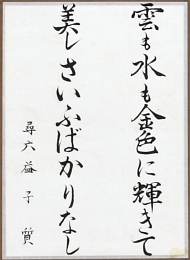 雲も水も金色に輝きて
美しさいふばかりなし